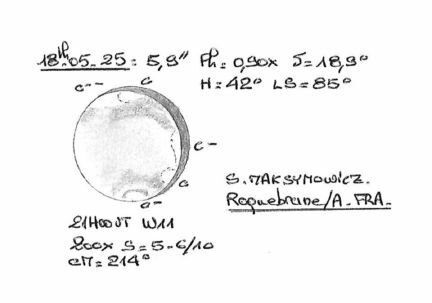 18th.05.25: 5,9" Ph: 0,90x δ=18,9°
H=42° LS=85°
C-- C
C-
C
C-
S. MAKSYMOWICZ.
Roquebrune/A. FRA.
21H00UT W11
200x S=5-6/10
CM=214°